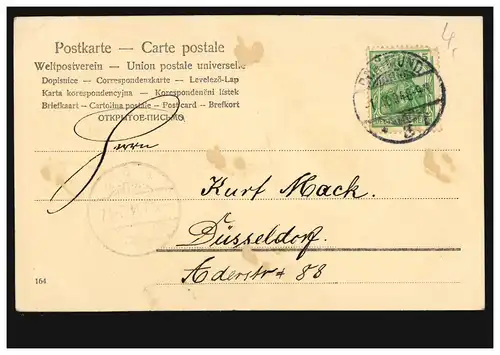 4.
Postkarte — Carte postale
Weltpostverein — Union postale universelle
Dopisnice — Correspondenzkarte — Levelező-Lap
Karta korespondencyjna — Korespondenční lístek
Briefkaart — Cartolina postale — Postcard — Brefkort
ОТКРЫТОЕ-ПИСЬМО
Herrn
Kurt Mack.
Düsseldorf.
Aderstr 88
164